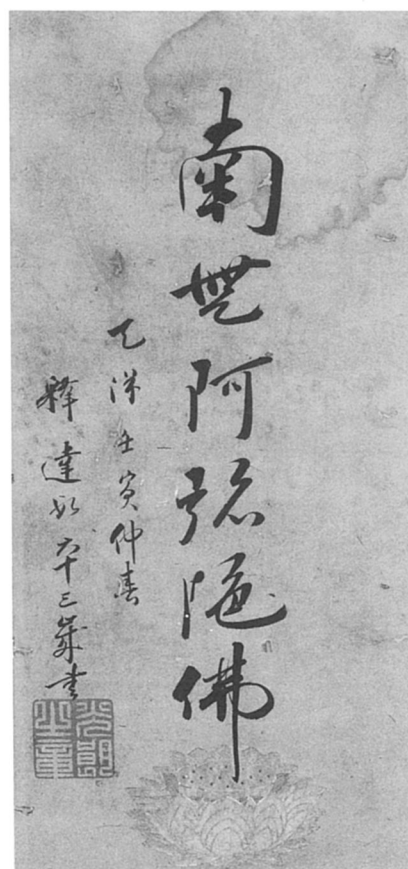 南無阿弥陀佛
天保壬寅仲春
釋達如六十三歳書